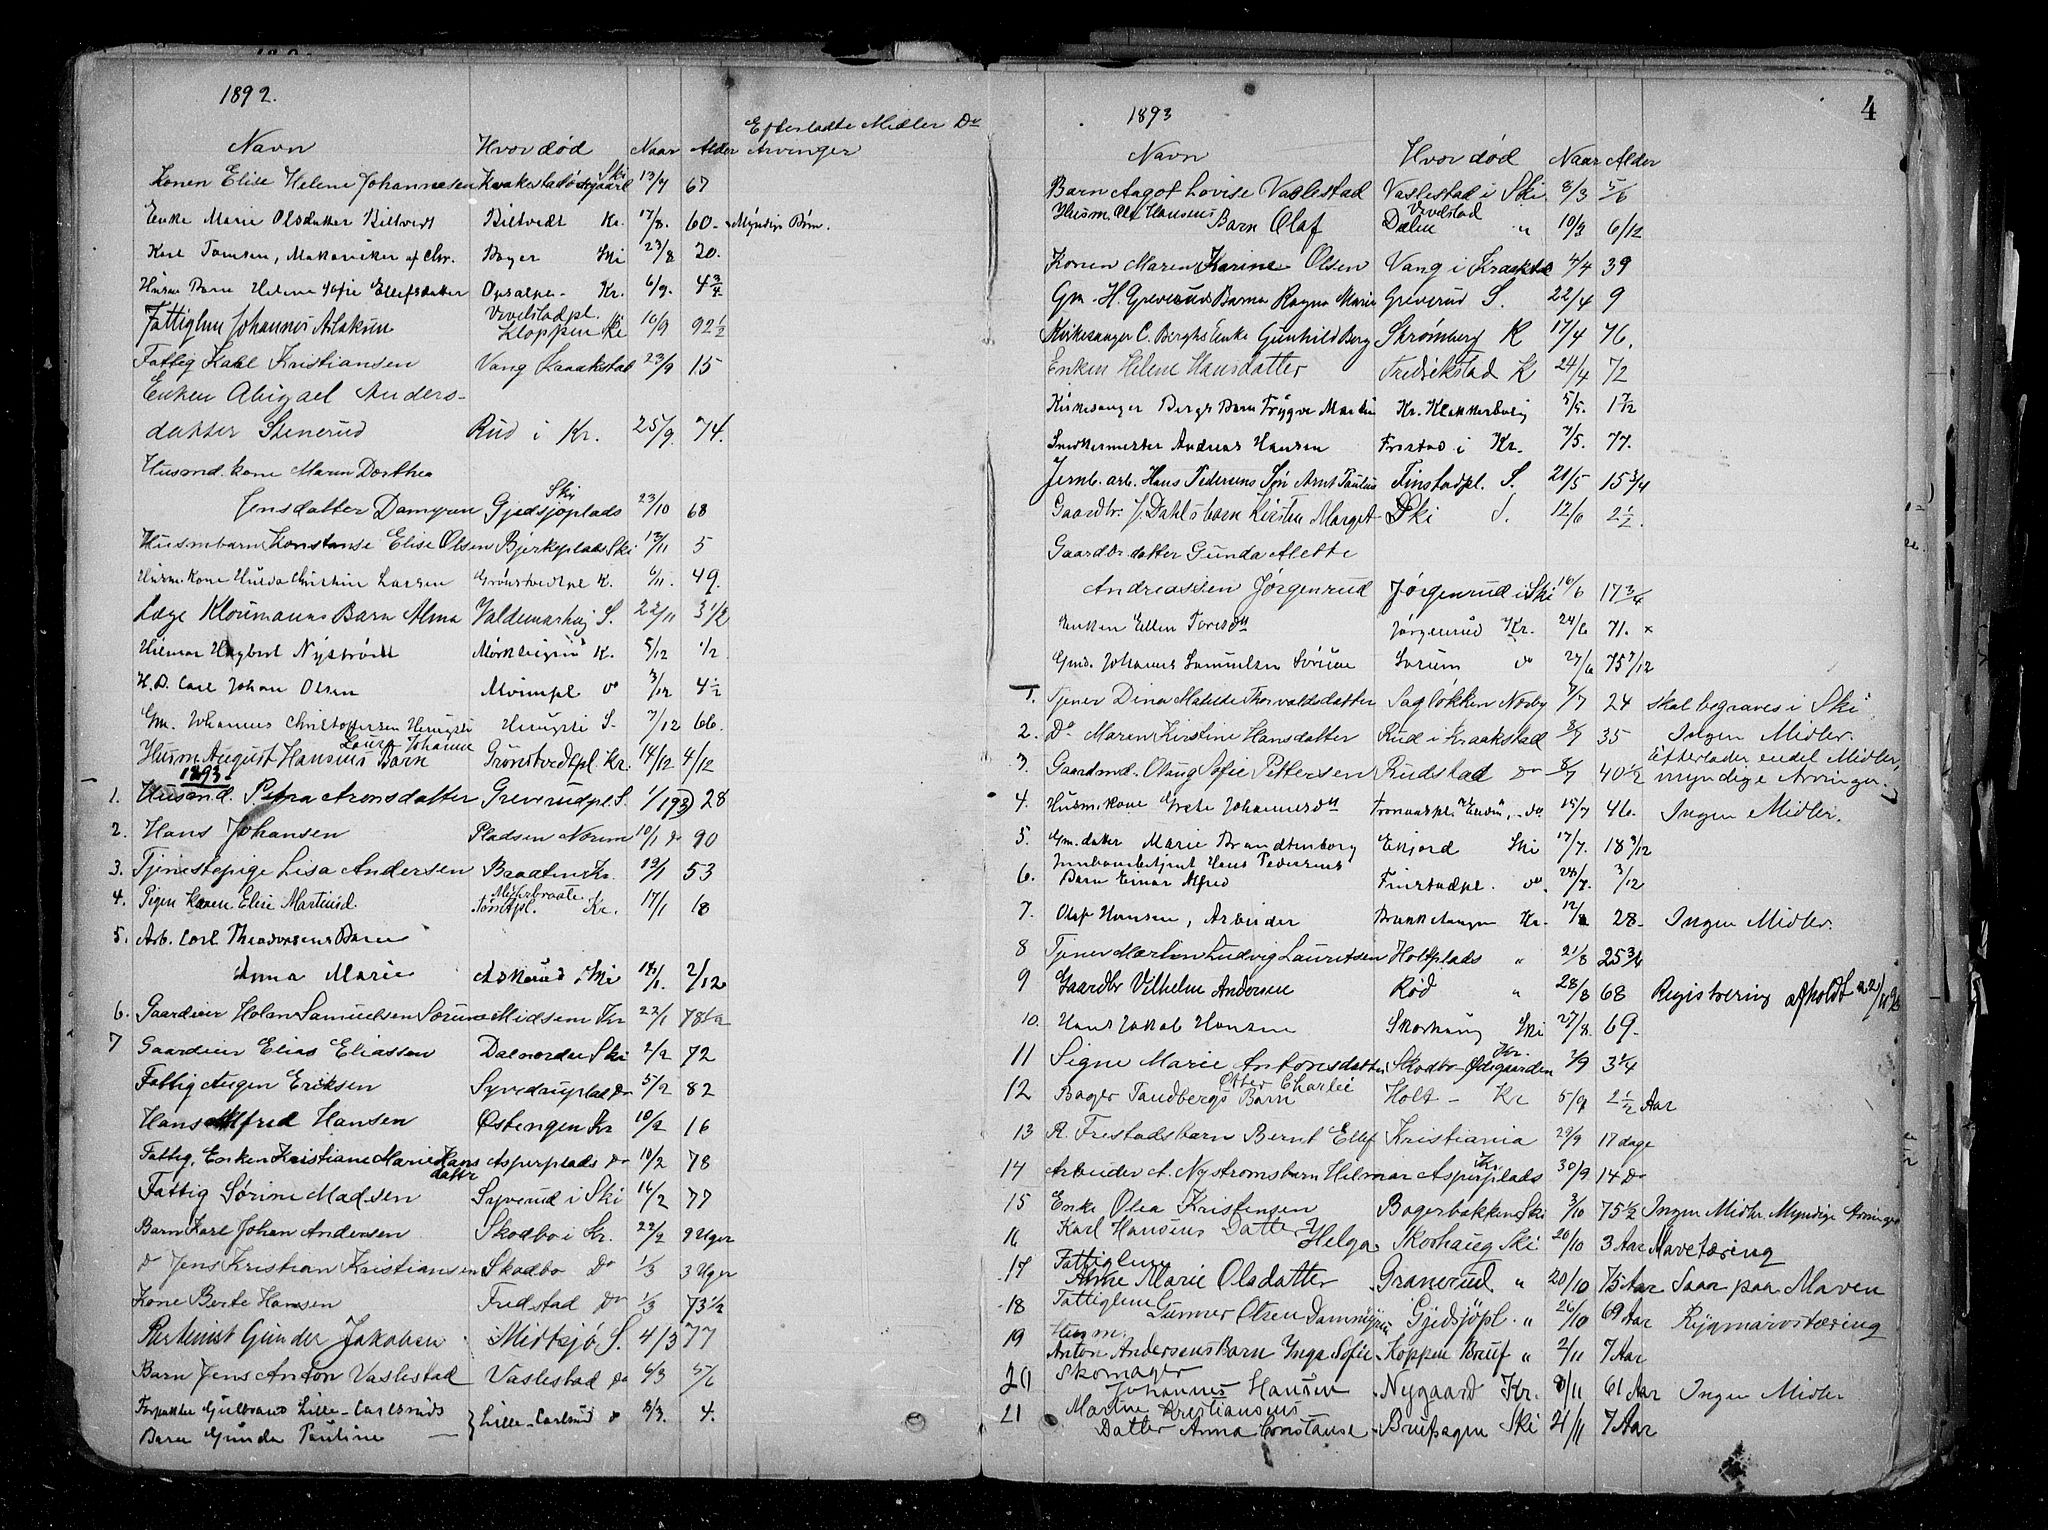 1892.
Efterladte Midler Do
Navn Hvor død Naar Alder Arvinger
Konen Elise Helene Johannesen Kvakestadødegaard Ski 13/7 67
Enke Marie Olsdatter Biltvedt Biltvedt Kr. 17/8. 60. Myndige Børn.
Karl Tomsen, af Chr. Bøger Ski 23/8 20.
Husm Barn Helene Sofie Ellefsdatter Opsalpl. Kr. 6/9. 4 3/4
Fattiglem Johannes Aslaksen Vevelstadpl. Kloppen Ski 10/9 92 1/2
Fattig Karl Kristiansen Vang Kraakstad 23/9 15
Enken Abigael Anders-
datter Stenerud Rud i Kr. 25/9. 74.
Husmd. kone Maren Dorthea
Jensdatter Damyren Gjedsjøplads Ski 23/10 68
Husmbarn Konstanse Elise Olsen Bjerkeplads Ski 13/11 5
Husm. Kone Hulda Christin Larsen Grønstvedtpl K. 6/11. 49.
Læge Kloumanns Barn Alma Valdemarhøj S. 22/11 3 1/2
Hilmar Hagbert Nystrøm K. 5/12 1/2
H.D. Carl Johan Olsen do 3/12 4 1/2
Gm. Johannes Christoffersen S. 7/12 66.
Laura Johanne
Husm August Hansens Barn Grønstvedtpl. Kr. 14/12 4/12
1893.
1. Husmd. Petra Aronsdatter Greverudpl. S. 1/1 93) 28
2. Hans Johansen Pladsen Norum 10/1 do 90
3. Tjenestepige Lisa Andersen Braaten Kr. 19/1 53
4. Pigen Karen Elise Martinsd. Kr. 17/1 18
5. Arb. Carl Theodorsens Barn
Anna Marie Askerud i Ski 18/1. 2/12
6. Gaardeier Holm Samuelsen Sørum Midsem Kr 22/1 78 1/2
7 Gaardeier Elias Eliassen Dalnordre Ski 2/2 72
Fattig Augen Eriksen Syverudplad do 5/2 82
Hans Alfred Hansen Østengen Kr 10/2 16
Fattig. Enken Kristiane Marie Hansdattr Asperplads do 10/2 78
Fattig Sørine Madsen Syverud i Ski 16/2 77
Barn Karl Johan Andersen Skodbo i Kr. 22/2 9 Uger
d Jens Kristian Kristiansen Skodbo Do 1/3 3 Uger
Kone Berte Hansen Fredstad do 1/3 73 1/2
Gunder Jakobsen Midtsjø S. 4/3 77
Barn Jens Anton Vaslestad Vaslestad do 6/3 5/6
Forpakter Gulbrand Lille-Carlsruds
Barn Gunda Pauline } Lille-Carlsrud do 8/3. 4.
4
1893
Navn Hvor død Naar Alder
Barn Aagot Lovise Vaslestad Vaslestad i Ski 8/3 5/6
Husm. Ole Hansens Vevelstad
Barn Olaf Dalen " 10/3 6/12
Konen Maren Karine Olsen Vang i Kraakstad 4/4 39
Gm H. Greveruds Barn Ragna Marie Greverud S. 22/4 9
Kirkesanger C. Berghs Enke Gunhild Berg Strømberg K 17/4 76.
Enken Helene Hansdatter Fredrikstad K 24/4 72
Kirkesanger Bergs Barn Trygve Martin Kr. Klokkerbolig 5/5. 1 7/12
Snedkermester Andreas Hansen Frestad i Kr. 7/5. 77.
Jernb. arb. Hans Pedersens Søn Arnt Paulus Finstadpl. S. 21/5 15 3/4
Gaardbr. J. Dahls barn Kirsten Margot Ski S. 12/6 2 1/2.
Gaardbr datter Gunda Alette
Andreassen Jørgenrud Jørgenrud i Ski 16/6 17 3/4
Enken Ellen Toresdtt Jørgenrud Kr. 24/6 71. x
Gmd. Johannes Samuelsen Sørum Sørum do 27/6 75 7/12
1. Tjener Dina Matilde Thorvaldsdatter Sagløkken Norby 7/7 24 skal begraves i Ski
2. Do Maren Kirstine Hansdatter Rud i Kraakstad 8/7 35 Ingen Midler.
3. Gaardmd. Olaug Sofie Pettersen Rudstad do 8/7 40 1/2 Efterlader endel Midler, myndige Arvinger.
4. Husm. kone Grete Johannesdtt do 15/7 46. Ingen Midler.
5. Gm. datter Marie Brandtenborg Ekjord Ski 17/7. 18 3/12
6. Hans Pedersens
Barn Einar Alfred Finstadpl. do 28/7. 3/12
7. Olaf Hansen, Arbeider Kr. 12/8 28. Ingen Midler.
8 Tjener Marten Ludvig Lauritsen Holtplads " 21/8 25 3/4
9 Gaardbr Vilhelm Andersen Rød " 28/8 68 Registrering afholdt
10. Hans Jakob Hansen Skorhaug Ski 27/8. 69.
11 Signe Marie Antonsdatter Skodbo-Ødegaarden Kr. 1/9 3 1/4
12 Bager Tandbergs Barn Otter Charlie Holt - Kr 5/9 2 1/2 Aar
13 R. Frestadsbarn Bernt Ellef Kristiania 29/9 17 dage
14 Arbeider A. Nystromsbarn Hilmar Asperplads Kr. 30/9 14 do
15 Enke Olea Kristensen Bøgerbakken Ski 3/10 75 1/2 Ingen Midler Myndige Arvinger
16 Karl Hansens Datter Helga Skorhaug Ski 20/10 3 Aar Mavetæring
17 Fattiglem
Anne Marie Olsdatter Granerud " 20/10 75 Aar Saar paa Maven
18 Fattiglem
Gunner Olsen Dammyren Gjedsjøpl. " 26/10 69 Aar Rygmarvstæring
19 Husm.
Anton Andersens Barn Inga Sofie Koppen Bruf " 2/11 7 Aar
20 Skomager
Johannes Hansen Nygaard Kr. 8/11 61 Aar Ingen Midler
21 Martine Kristiansens
Datter Anna Constanse Brufsagen Ski 21/11 7 Aar